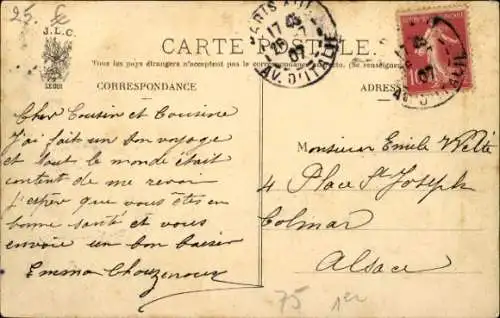 25. fe
J.L.C.
PARIS
17 45
25 - 27
07
AV. D'ITALIE
CARTE POSTALE
Tous les pays étrangers n'acceptent pas la correspondance au recto, (Se renseigner
CORRESPONDANCE
ADRESSE
10
17 45
07
AV. D'ITALIE
Cher Cousin et Cousine
J'ai fait un bon voyage
et tout le monde était
content de me revoir
J'espère que vous êtes en
bonne santé et vous
envoie un bon baiser
Emma
Monsieur Emile Welte
4 Place St Joseph
Colmar
Alsace
75 1er